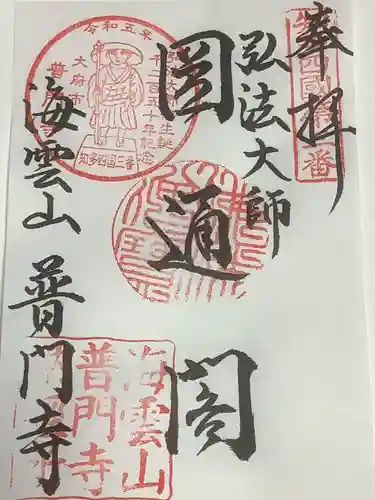 奉拝
弘法大師
圓通閣
海雲山 普門寺
令和五年
弘法大師
生誕
千二百五十年記念
大府市
知多四国三番
海雲山
普門寺